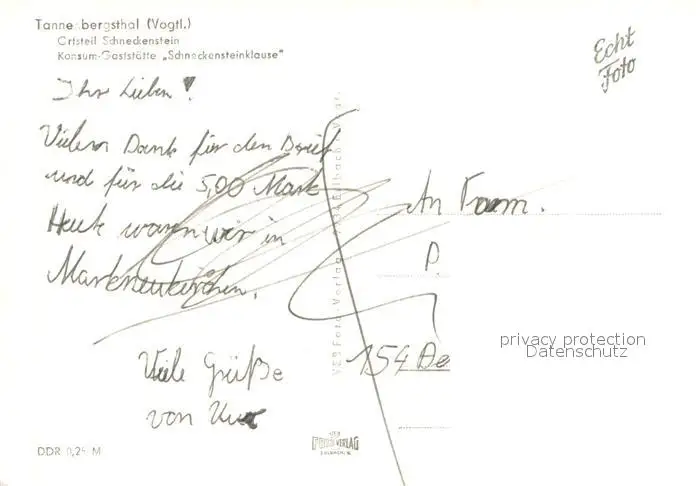 Tannenbergsthal (Vogtl.)
Ortsteil Schneckenstein
Konsum-Gaststätte „Schneckensteinklause"
Echt
Foto
Ihr Lieben!
Vielen Dank für den Brief
und für die 5,00 Mark
Heute waren wir in
Markneukirchen.
Viele Grüße
von
An Fam.
P.
154 De
privacy protection
Datenschutz
VEB Foto-Verlag
VEB
FOTO VERLAG
DDR 0,25 M